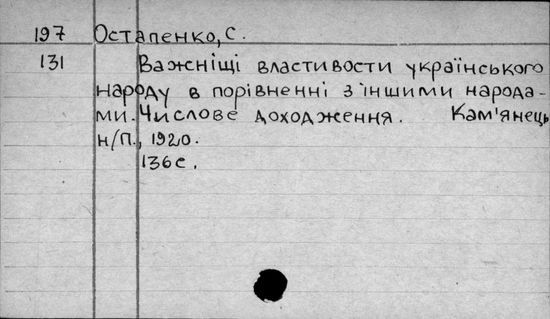 197 Остапенко, С.
131 Важніщі властивости українського
народу в порівненні з іншими народа-
ми. Числове доходження. Кам'янець
н/П., 1920.
136 с.